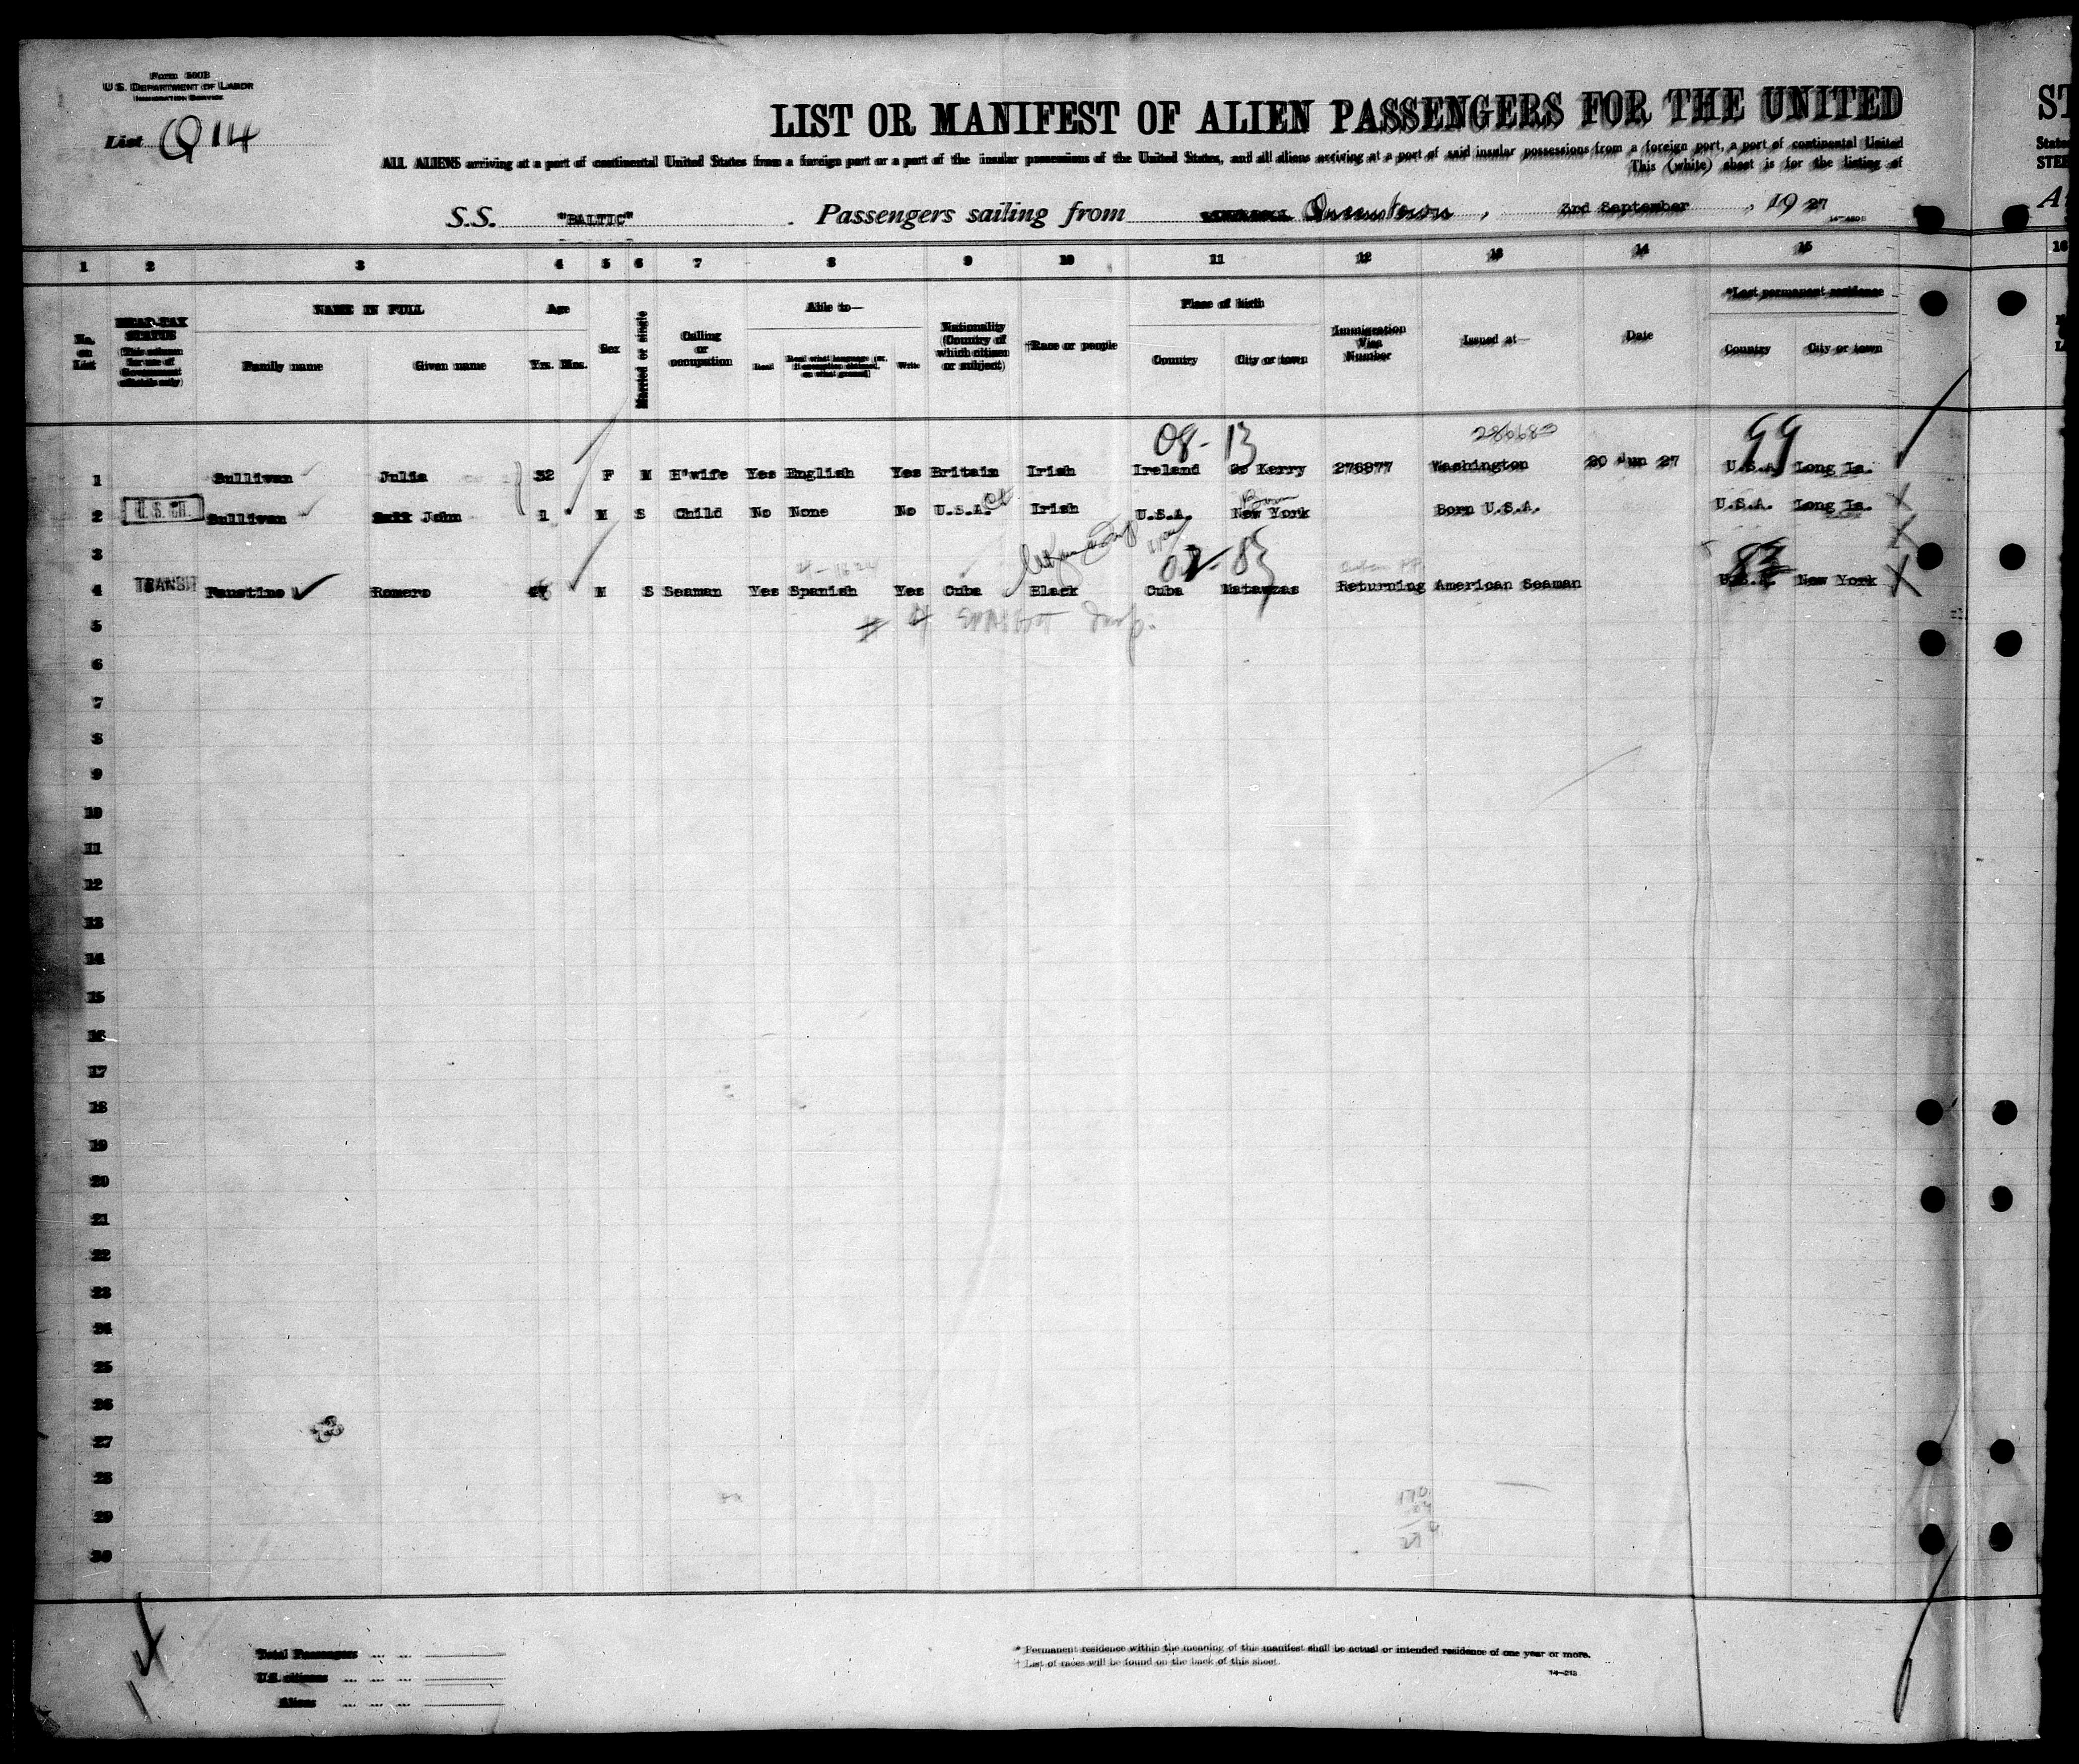 Form 500B
U.S. DEPARTMENT OF LABOR
IMMIGRATION SERVICE
List Q 14
LIST OR MANIFEST OF ALIEN PASSENGERS FOR THE UNITED
ST
ALL ALIENS arriving at a port of continental United States from a foreign port or a port of the insular possessions of the United States, and all aliens arriving at a port of said insular possessions from a foreign port, a port of continental United
This (white) sheet is for the listing of
S.S. "BALTIC" . Passengers sailing from Queenstown , 3rd September , 19 27
1 2 3 4 5 6 7 8 9 10 11 12 13 14 15 16
No. on List
HEAD-TAX STATUS (This column for use of Government officials only)
NAME IN FULL
Family name Given name
Age
Yrs. Mos.
Sex
Married or single
Calling or occupation
Able to—
Read Read what language (or, if exemption claimed, on what ground) Write
Nationality (Country of which citizen or subject)
†Race or people
Place of birth
Country City or town
Immigration Visa Number
Issued at—
Date
*Last permanent residence
Country City or town
08-13 99
1 Sullivan Julia 32 F M H'wife Yes English Yes Britain Irish Ireland Co Kerry 276877 Washington 20 Jun 27 U.S.A. Long Is.
2 Sullivan John 1 M S Child No None No U.S.A. Irish U.S.A. New York Born U.S.A. U.S.A. Long Is.
3
4 TRANSIT Faustino Romero M S Seaman Yes Spanish Yes Cuba Black Cuba Matanzas Returning American Seaman U.S.A. New York
5
6
7
8
9
10
11
12
13
14
15
16
17
18
19
20
21
22
23
24
25
26
27
28
29
30
Total Passengers
U.S. citizens
Aliens
* Permanent residence within the meaning of this manifest shall be actual or intended residence of one year or more.
† List of races will be found on the back of this sheet.
14—213